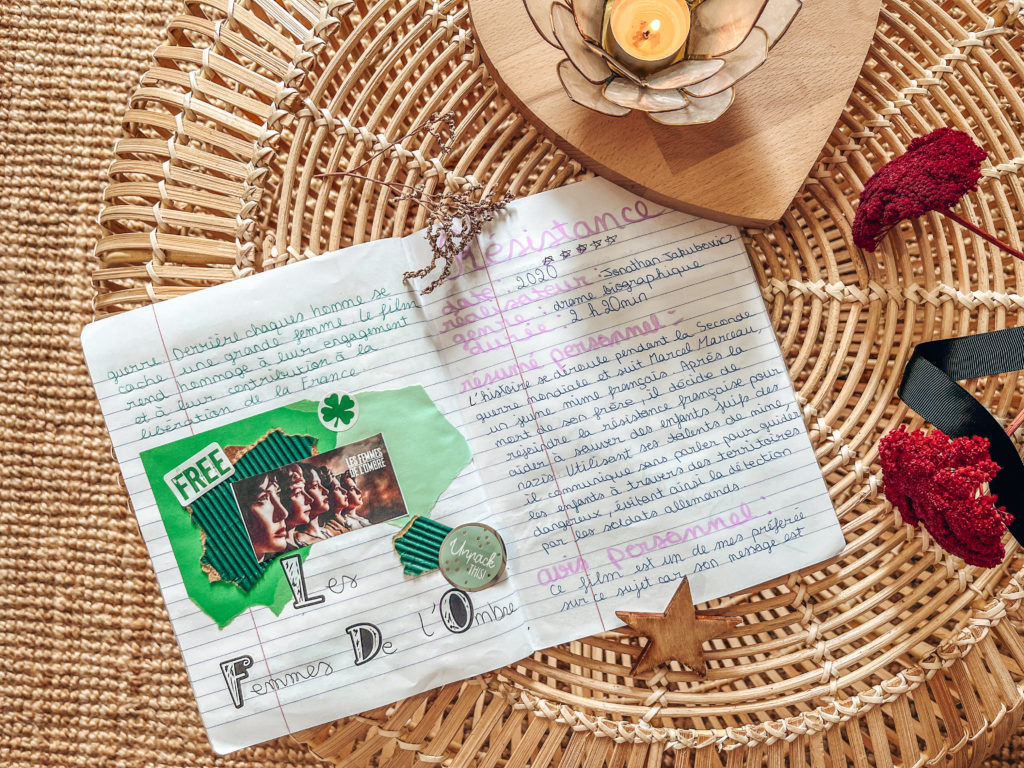 guerre. Derrière chaques homme se
cache une grande femme. Le film
rend hommage à leur engagement
et à leur contribution à la
libération de la France
FREE
LES FEMMES
DE L'OMBRE
Unpack
THIS!
Les
Femmes De l'Ombre
Résistance
date : 2020
réalisateur : Jonathan Jakubowicz
genre : drame biographique
durée : 2 h 20min
résumé personnel :
L'histoire se déroule pendant la Seconde
guerre mondiale et suit Marcel Marceau,
un jeune mime français. Après la
mort de ses frère, il décide de
rejoindre la résistance française pour
aider à sauver des enfants juifs des
nazis. Utilisant ses talents de mime,
il communique sans parler pour guider
les enfants à travers des territoires
dangereux, évitant ainsi la détection
par les soldats allemands.
avis personnel :
ce film est un de mes préférée
sur ce sujet car son message est